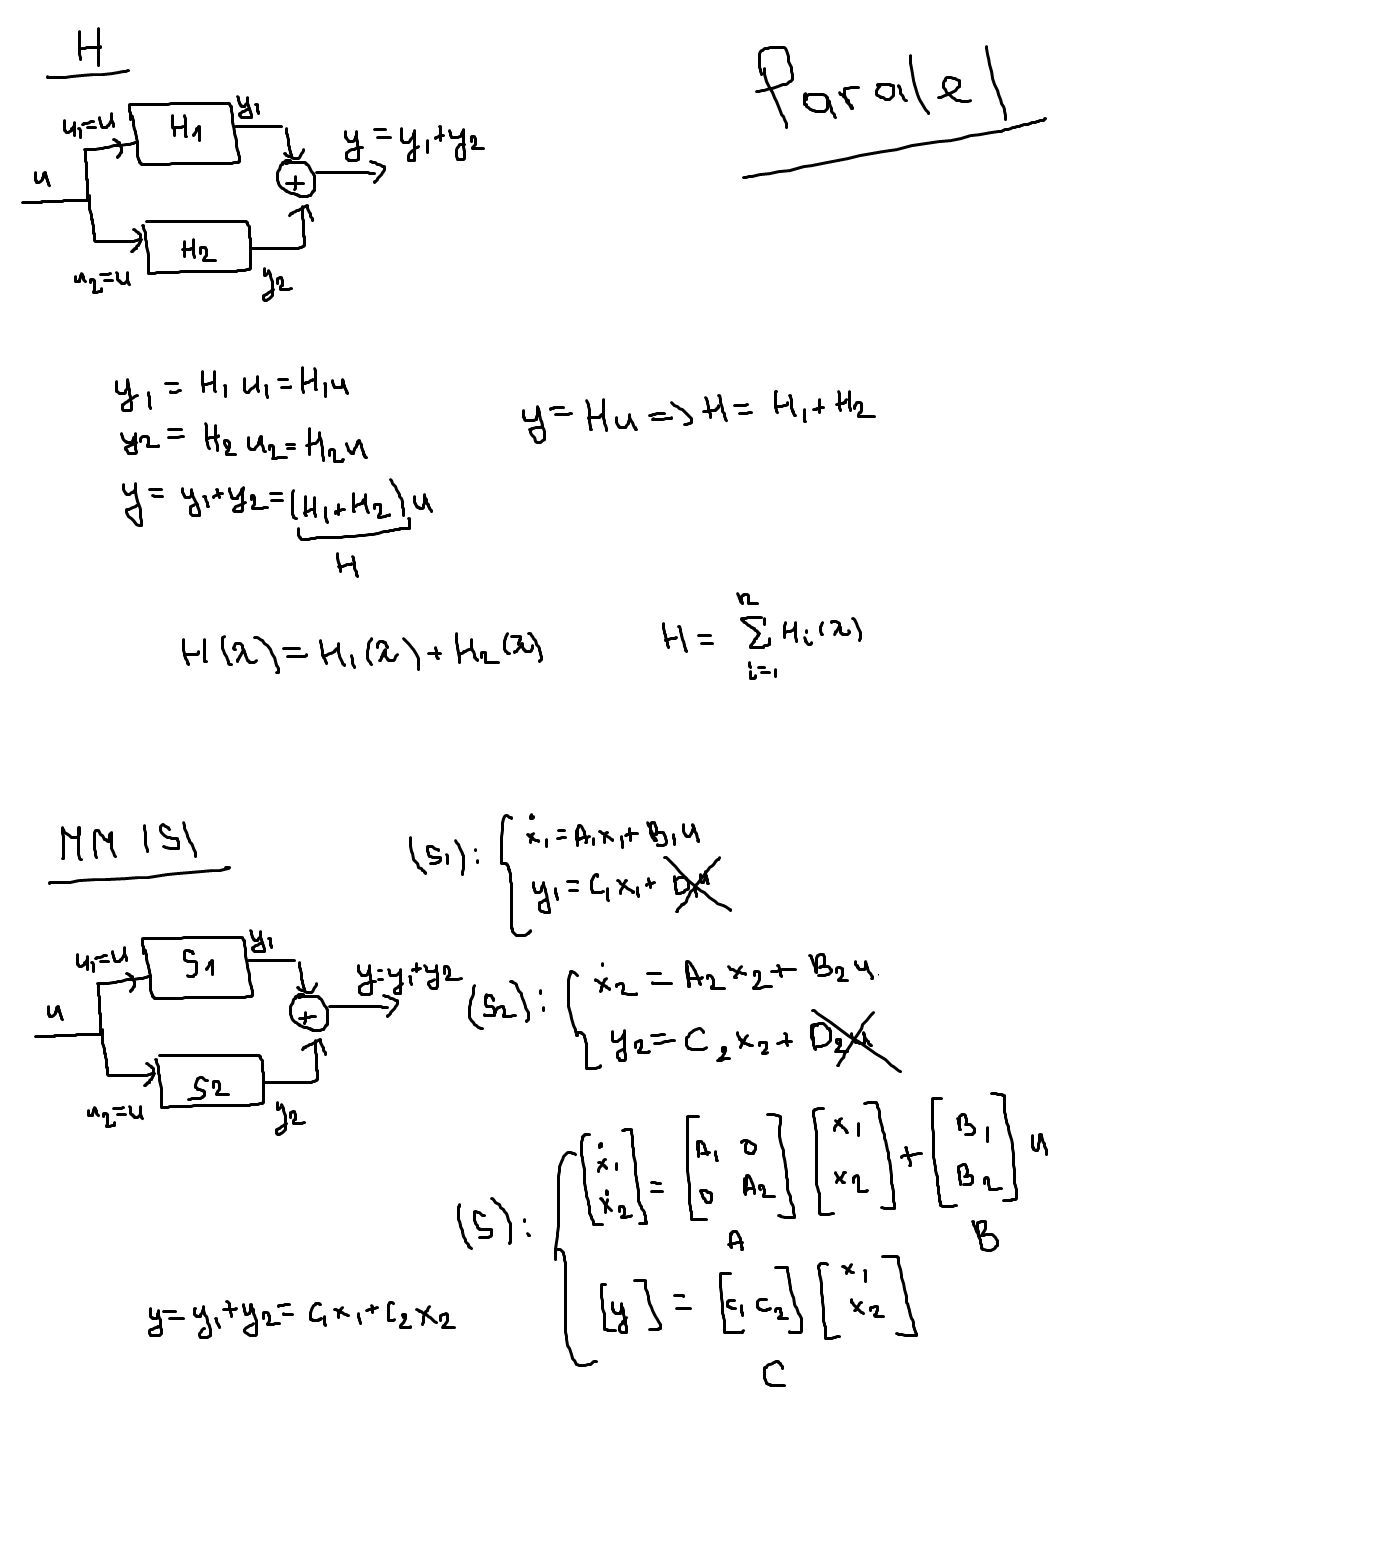 H
Paralel
u₁=u
H1
y₁
y = y₁+y₂
u
+
H2
u₂=u
y₂
y₁ = H₁ u₁ = H₁u
y₂ = H₂ u₂ = H₂u
y = y₁+y₂ = (H₁+H₂)u
H
y = Hu => H = H₁+H₂
H(λ) = H₁(λ) + H₂(λ)
H = ∑ᵢ₌₁ⁿ Hᵢ(λ)
MM |S|
(S₁): { ẋ₁ = A₁x₁ + B₁u
y₁ = C₁x₁ + D₁u
u₁=u
S1
y₁
y=y₁+y₂
u
+
S2
u₂=u
y₂
(S₂): { ẋ₂ = A₂x₂ + B₂u
y₂ = C₂x₂ + D₂u
(S): { [ẋ₁ ; ẋ₂] = [A₁ 0 ; 0 A₂] [x₁ ; x₂] + [B₁ ; B₂] u
A
B
y = y₁+y₂ = C₁x₁ + C₂x₂
[y] = [C₁ C₂] [x₁ ; x₂]
C